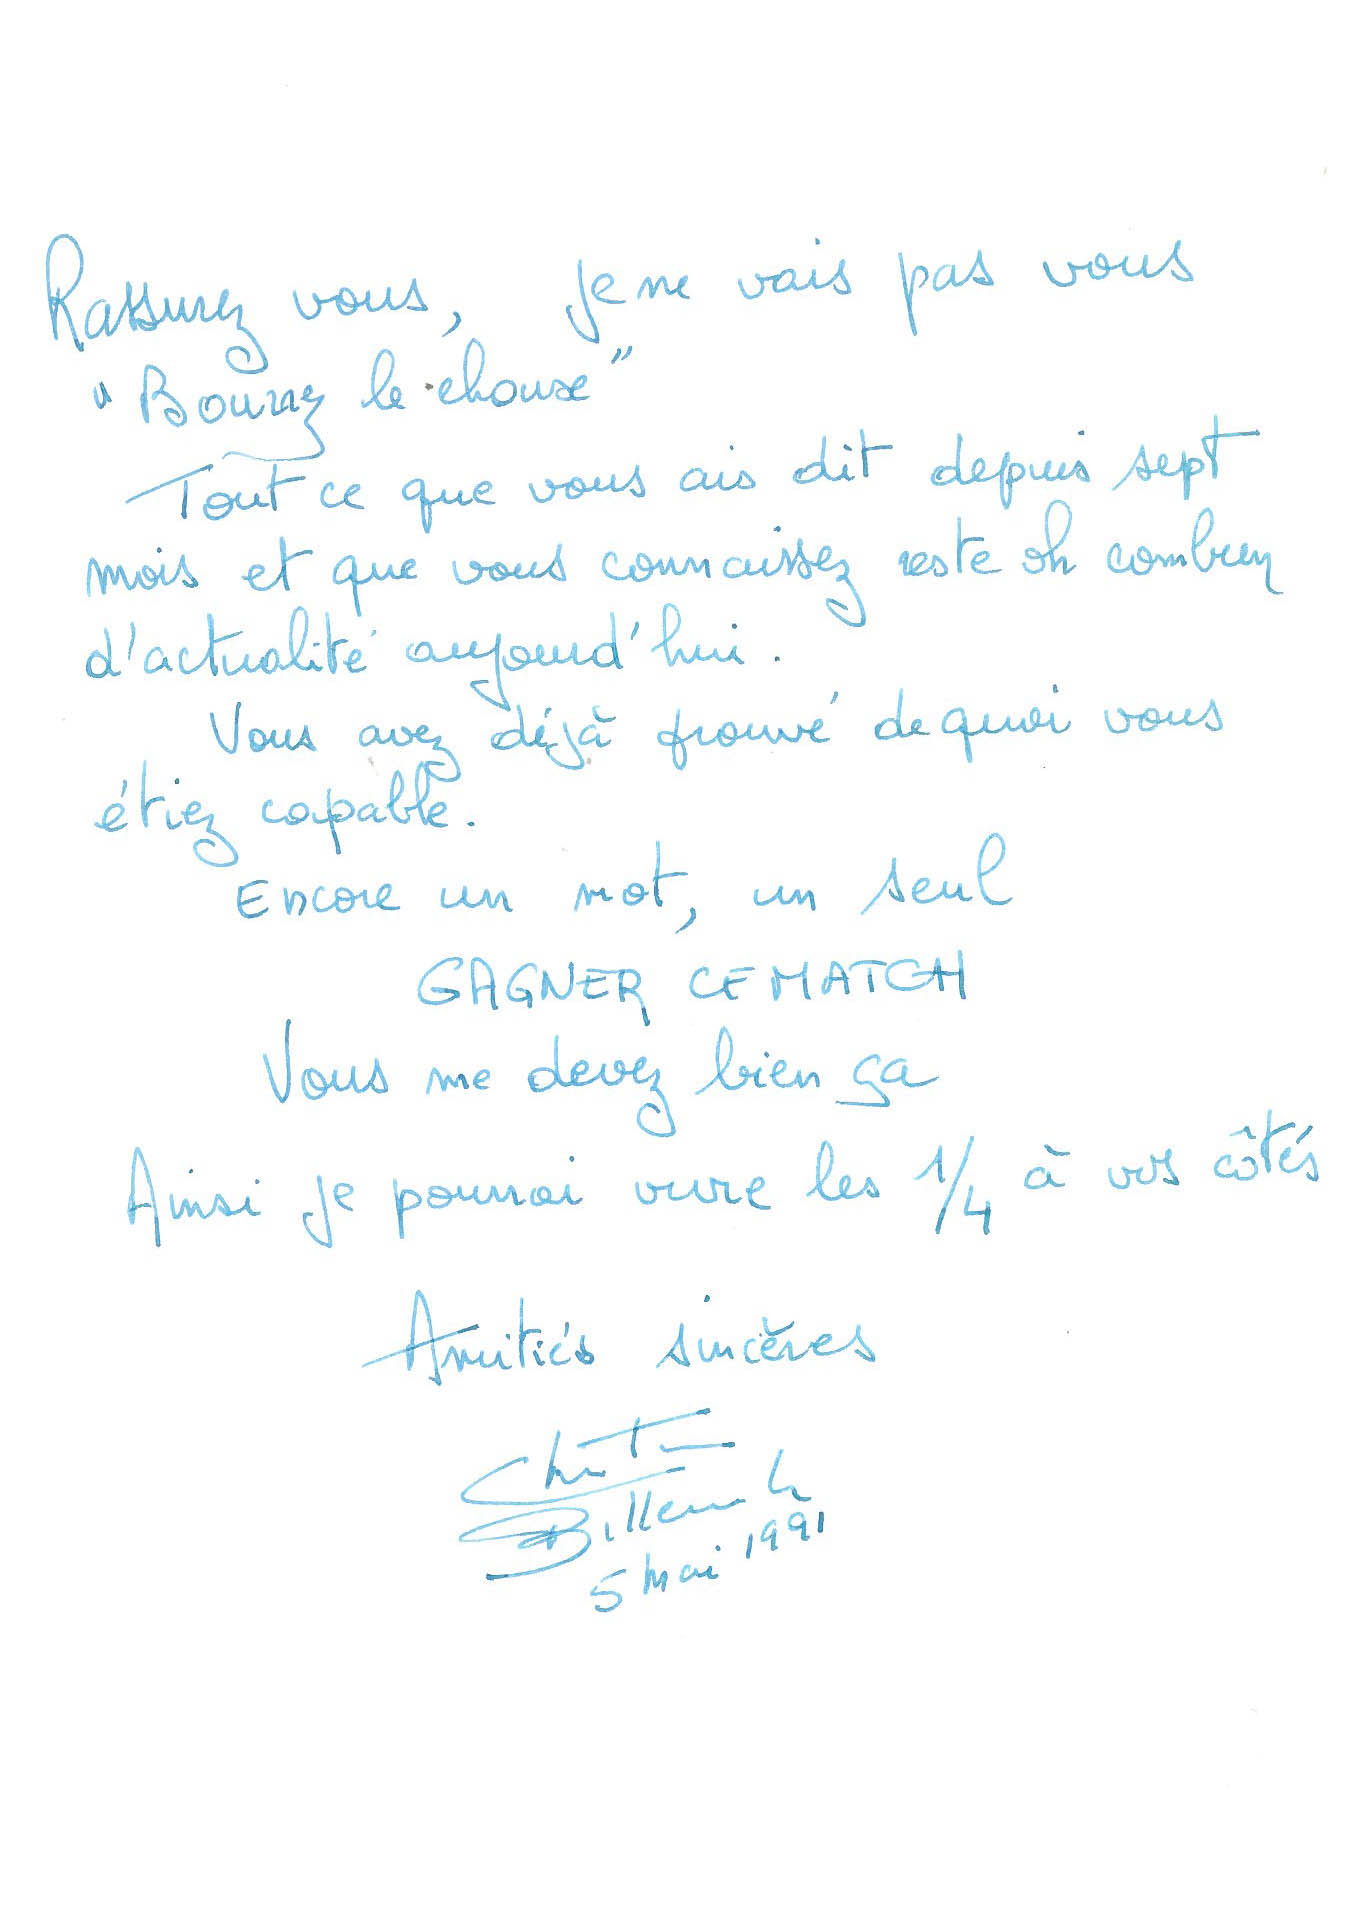 Rassurez vous, je ne vais pas vous
"Bourrez le chouxe"
Tout ce que vous ais dit depuis sept
mois et que vous connaissez reste oh combien
d'actualité aujourd'hui.
Vous avez déjà prouvé de quoi vous
étiez capable.
Encore un mot, un seul
GAGNER CE MATCH
Vous me devez bien ça
Ainsi je pourrai vivre les 1/4 à vos côtés
Amitiés sincères
5 mai 1991